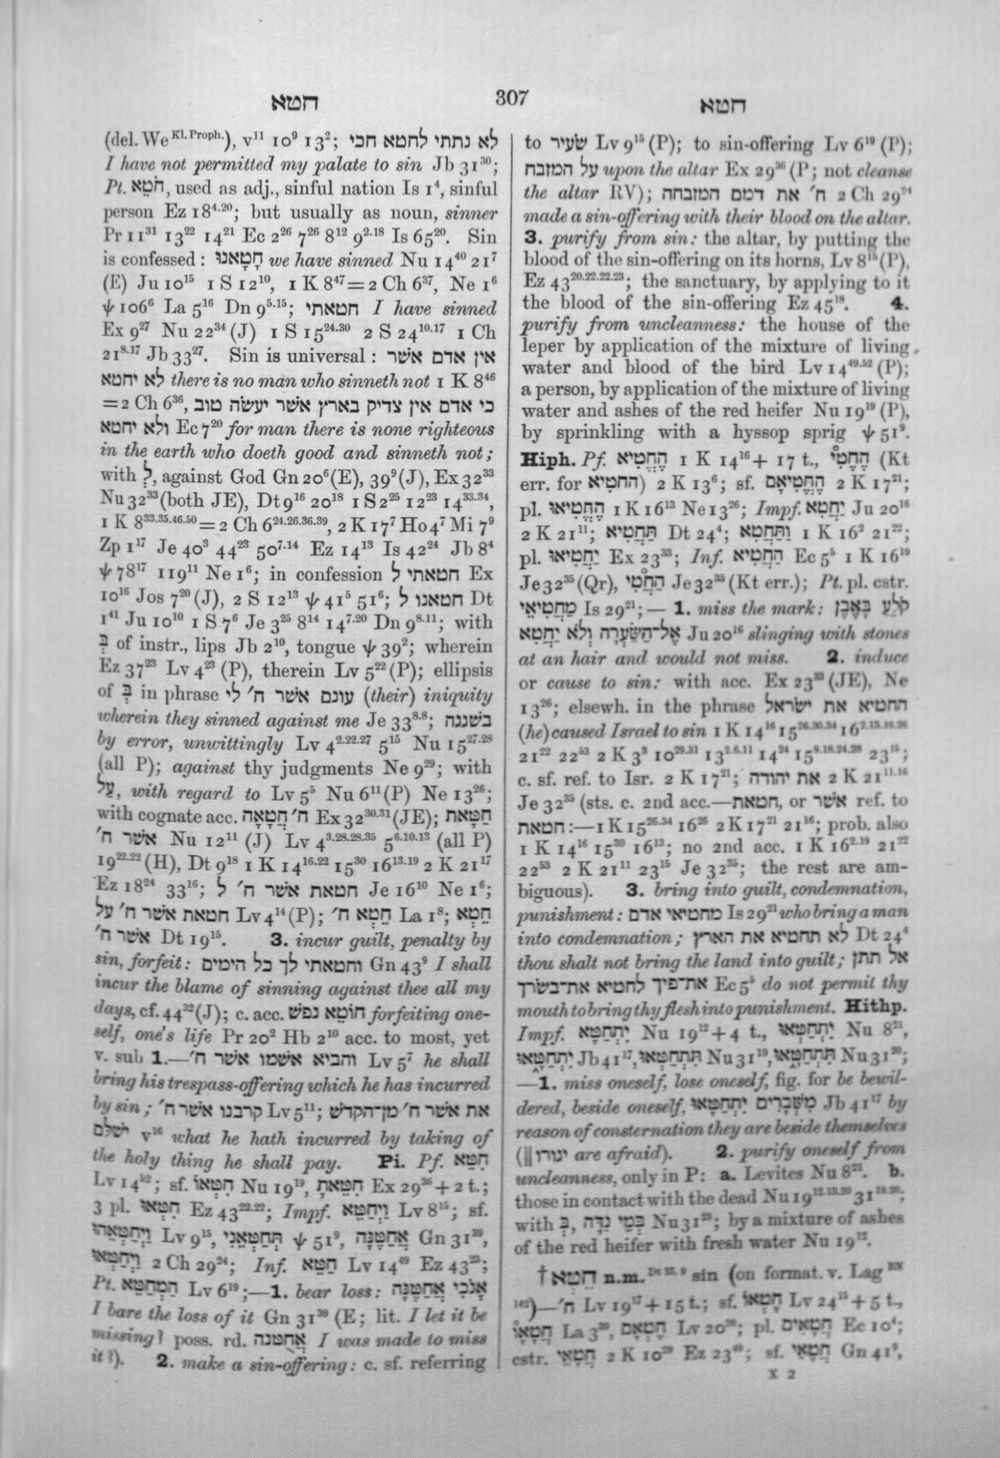 חטא
307
חטא
(del. We Kl. Proph.), v11 109 132; לא נתתי לחטא חכי
I have not permitted my palate to sin Jb 3130;
Pt. חֹטֵא, used as adj., sinful nation Is 14, sinful
person Ez 184.20; but usually as noun, sinner
Pr 1131 1322 1421 Ec 226 726 812 92.18 Is 6520. Sin
is confessed: חָטָאנוּ we have sinned Nu 1440 217
(E) Ju 1015 1 S 1210, 1 K 847=2 Ch 637, Ne 16
ψ 1066 La 516 Dn 95.15; חטאתי I have sinned
Ex 927 Nu 2234 (J) 1 S 1524.30 2 S 2410.17 1 Ch
218.17 Jb 3327. Sin is universal: אין אדם אשר
לא יחטא there is no man who sinneth not 1 K 846
=2 Ch 636, כי אדם אין צדיק בארץ אשר יעשה טוב
ולא יחטא Ec 720 for man there is none righteous
in the earth who doeth good and sinneth not;
with לְ, against God Gn 206 (E), 399 (J), Ex 3233
Nu 3233 (both JE), Dt 916 2018 1 S 225 1223 1433.34,
1 K 833.35.46.50=2 Ch 624.26.36.39, 2 K 177 Ho 47 Mi 79
Zp 117 Je 403 4423 507.14 Ez 1413 Is 4224 Jb 84
ψ 7817 11911 Ne 16; in confession חטאתי ל Ex
1016 Jos 720 (J), 2 S 1213 ψ 415 516; חטאנו ל Dt
141 Ju 1010 1 S 76 Je 325 814 147.20 Dn 98.11; with
בְּ of instr., lips Jb 210, tongue ψ 392; wherein
Ez 3723 Lv 423 (P), therein Lv 522 (P); ellipsis
of בְּ in phrase עונם אשר ח' לי (their) iniquity
wherein they sinned against me Je 338.8; בשגגה
by error, unwittingly Lv 42.22.27 515 Nu 1527.28
(all P); against thy judgments Ne 929; with
עַל, with regard to Lv 55 Nu 611 (P) Ne 1326;
with cognate acc. ח' חֲטָאָה Ex 3230.31 (JE); חַטָּאת
אשר ח' Nu 1211 (J) Lv 43.28.28.35 56.10.13 (all P)
1922.22 (H), Dt 918 1 K 1416.22 1530 1613.19 2 K 2117
Ez 1824 3316; חטאת אשר ח' ל Je 1610 Ne 16;
חטאת אשר ח' על Lv 414 (P); חֵטְא ח' La 18; חֵטְא
אשר ח' Dt 1915. 3. incur guilt, penalty by
sin, forfeit: וחטאתי לך כל הימים Gn 439 I shall
incur the blame of sinning against thee all my
days, cf. 4432 (J); c. acc. חוֹטֵא נפש forfeiting one-
self, one's life Pr 202 Hb 210 acc. to most, yet
v. sub 1.—והביא אשמו אשר ח' Lv 57 he shall
bring his trespass-offering which he has incurred
by sin; קרבנו אשר ח' Lv 511; את אשר ח' מן־הקדש
ישלם v16 what he hath incurred by taking of
the holy thing he shall pay. Pi. Pf. חִטֵּא
Lv 1452; sf. חִטְּאוֹ Nu 1919, חִטֵּאתָ Ex 2936+2 t.;
3 pl. חִטְּאוּ Ez 4322.22; Impf. וַיְחַטֵּא Lv 815; sf.
וַיְחַטְּאֵהוּ Lv 915, תְּחַטְּאֵנִי ψ 519, אֲחַטֶּנָּה Gn 3139,
וַיְחַטְּאוּ 2 Ch 2924; Inf. חַטֵּא Lv 1449 Ez 4323;
Pt. הַמְחַטֵּא Lv 619;—1. bear loss: אָנֹכִי אֲחַטֶּנָּה
I bare the loss of it Gn 3139 (E; lit. I let it be
missing? poss. rd. אחטנה I was made to miss
it?). 2. make a sin-offering: c. sf. referring
to שעיר Lv 915 (P); to sin-offering Lv 619 (P);
על המזבח upon the altar Ex 2936 (P; not cleanse
the altar RV); ח' את דמם המזבחה 2 Ch 2924
made a sin-offering with their blood on the altar.
3. purify from sin: the altar, by putting the
blood of the sin-offering on its horns, Lv 815 (P),
Ez 4320.22.22.23; the sanctuary, by applying to it
the blood of the sin-offering Ez 4518. 4.
purify from uncleanness: the house of the
leper by application of the mixture of living
water and blood of the bird Lv 1449.52 (P);
a person, by application of the mixture of living
water and ashes of the red heifer Nu 1919 (P),
by sprinkling with a hyssop sprig ψ 519.
Hiph. Pf. הֶחֱטִיא 1 K 1416+ 17 t., הֶחֱטִי (Kt
err. for החטיא) 2 K 136; sf. הֶחֱטִיאָם 2 K 1721;
pl. הֶחֱטִיאוּ 1 K 1613 Ne 1326; Impf. יַחֲטִא Ju 2016
2 K 2111; תַּחֲטִיא Dt 244; וַתַּחֲטִא 1 K 162 2122;
pl. יַחֲטִיאוּ Ex 2333; Inf. הַחֲטִיא Ec 55 1 K 1619
Je 3235 (Qr), הַחֲטִי Je 3235 (Kt err.); Pt. pl. cstr.
מַחֲטִיאֵי Is 2921;— 1. miss the mark: קֹלֵעַ בָּאֶבֶן
אֶל־הַשַּׂעֲרָה וְלֹא יַחֲטִא Ju 2016 slinging with stones
at an hair and would not miss. 2. induce
or cause to sin: with acc. Ex 2333 (JE), Ne
1326; elsewh. in the phrase החטיא את ישראל
(he) caused Israel to sin 1 K 1416 1526.30.34 162.13.19.26
2122 2253 2 K 33 1029.31 132.6.11 1424 159.18.24.28 2315;
c. sf. ref. to Isr. 2 K 1721; את יהודה 2 K 2111.16
Je 3235 (sts. c. 2nd acc.—חטאת, or אשר ref. to
חטאת:—1 K 1526.34 1626 2 K 1721 2116; prob. also
1 K 1416 1530 1613; no 2nd acc. 1 K 162.19 2122
2253 2 K 2111 2315 Je 3235; the rest are am-
biguous). 3. bring into guilt, condemnation,
punishment: מחטיאי אדם Is 2921 who bring a man
into condemnation; לא תחטיא את הארץ Dt 244
thou shalt not bring the land into guilt; אל תתן
את־פיך לחטיא את־בשרך Ec 55 do not permit thy
mouth to bring thy flesh into punishment. Hithp.
Impf. יִתְחַטָּא Nu 1912+4 t., יִתְחַטְּאוּ Nu 821,
יִתְחַטָּאוּ Jb 4117, תִּתְחַטְּאוּ Nu 3119, תִּתְחַטָּאוּ Nu 3120;
—1. miss oneself, lose oneself, fig. for be bewil-
dered, beside oneself, מִשְּׁבָרִים יִתְחַטָּאוּ Jb 4117 by
reason of consternation they are beside themselves
(‖ יגורו are afraid). 2. purify oneself from
uncleanness, only in P: a. Levites Nu 821. b.
those in contact with the dead Nu 1912.13.20 3119.20;
with בְּ, בְּמֵי נִדָּה Nu 3123; by a mixture of ashes
of the red heifer with fresh water Nu 1912.
†חֵטְא n.m. Dt 23, 9 sin (on format. v. Lag BN
142)—ח' Lv 1917+15 t.; sf. חֶטְאוֹ Lv 2415+5 t.,
חֲטָאָו La 339, חֶטְאָם Lv 2020; pl. חֲטָאִים Ec 104;
cstr. חֲטָאֵי 2 K 1029 Ez 2349; sf. חֲטָאַי Gn 419,
X 2